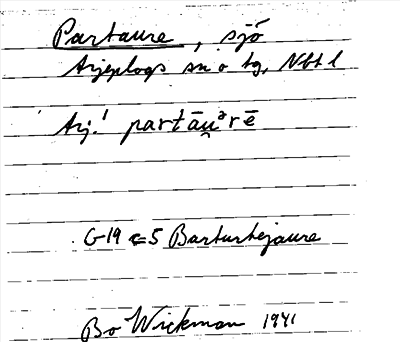 Partaure, sjö
Arjeplogs sn o tg, Nbt l
Arj.! partāu̯ᵊrē
G-19 c5 Barturtejaure
Bo Wickman 1941